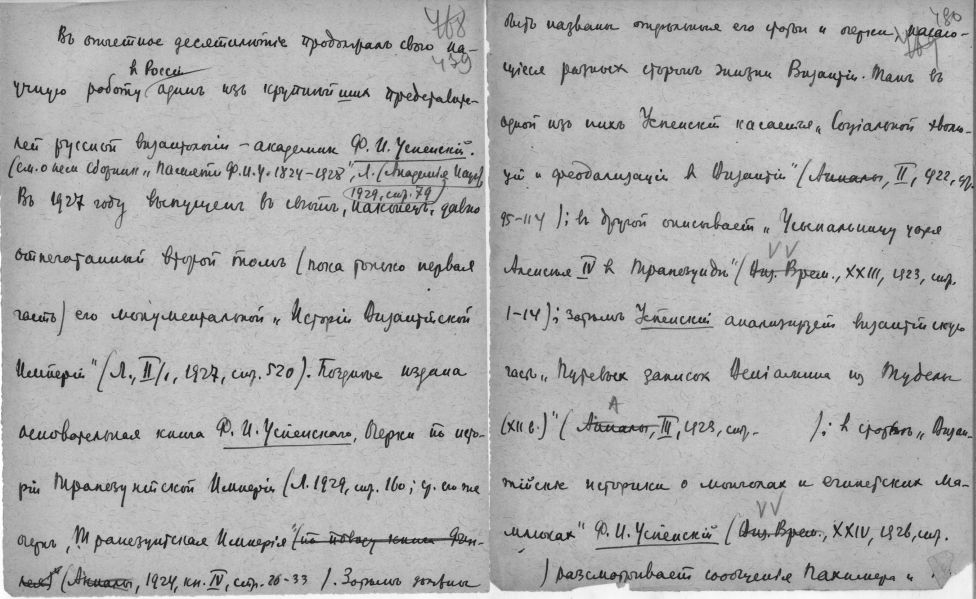 468
479
Въ отчетное десятилѣтіе продолжалъ свою на-
въ Россіи
учную работу одинъ изъ крупнѣйшихъ представите-
лей русской византологіи – академикъ Ф. И. Успенскій.
(см. о немъ сборникъ „Памяти Ф.И.У. 1824–1928", Л. (Академія Наукъ)
1929, стр. 79)
Въ 1927 году выпущенъ въ свѣтъ, наконецъ, давно
отпечатанный второй томъ (пока только первая
часть) его монументальной „Исторіи Византійской
Имперіи" (Л., II/1, 1927, стр. 520). Позднѣе издана
основательная книга Ф. И. Успенскаго, Очерки по исто-
ріи Трапезунтской Имперіи (Л. 1929, стр. 160; ср. его же
очеркъ „Трапезунтская Имперія" (по поводу книги Фин-
лея)" (Анналы, 1924, кн. IV, стр. 26–33). Затѣмъ должны
480
469
быть названы отдѣльные его статьи и очерки, касаю-
щіеся разныхъ сторонъ жизни Византіи. Такъ въ
одной изъ нихъ Успенскій касается „Соціальной эволю-
ціи и феодализаціи въ Византіи" (Анналы, II, 1922, стр.
95–114); въ другой описываетъ „Усыпальницу царя
Алексѣя IV въ Трапезундѣ" (Виз. Врем., XXIII, 1923, стр.
VV
1–14); затѣмъ Успенскій анализируетъ византійскую
часть „Путевыхъ записокъ Веніамина изъ Туделы
А
(XII в.)" (Анналы, III, 1923, стр. ); въ статьѣ „Визан-
тійскіе историки о монголахъ и египетскихъ ма-
VV
млюкахъ" Ф. И. Успенскій (Виз. Врем., XXIV, 1926, стр.
) разсматриваетъ сообщенія Пахимера и